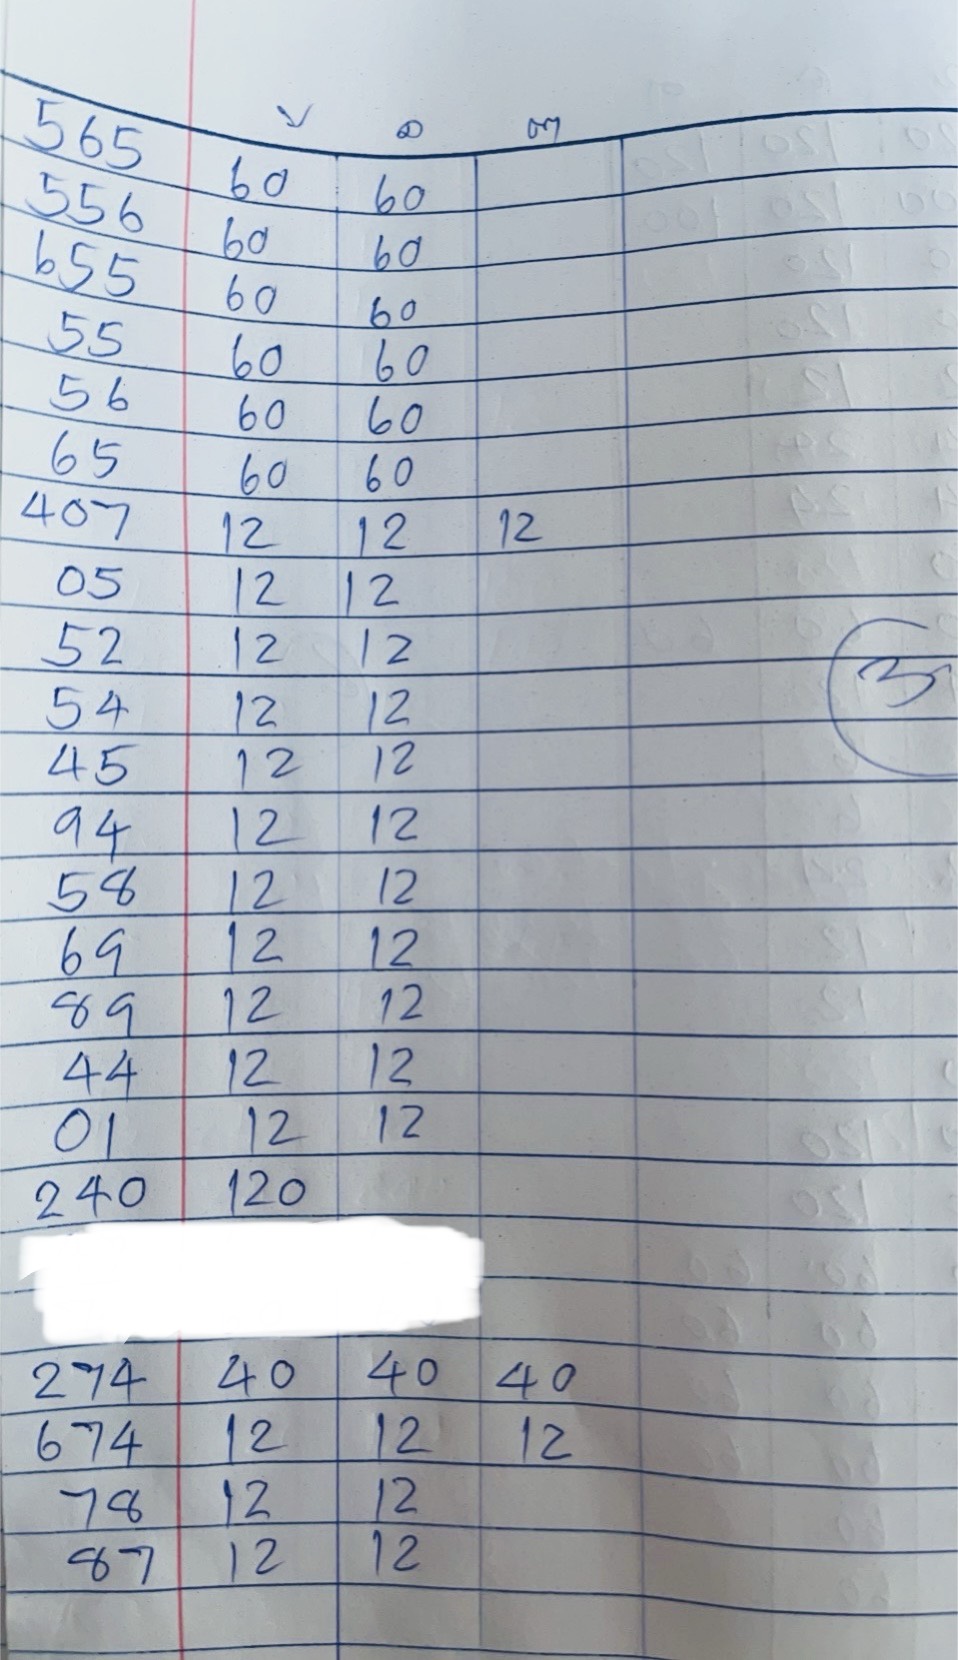 บ ล ต
565 60 60
556 60 60
655 60 60
55 60 60
56 60 60
65 60 60
407 12 12 12
05 12 12
52 12 12
54 12 12
45 12 12
94 12 12
58 12 12
69 12 12
89 12 12
44 12 12
01 12 12
240 120
274 40 40 40
674 12 12 12
78 12 12
87 12 12